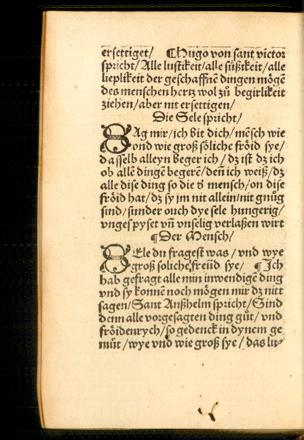 ersettiget/ ¶Hugo von sant victor
spricht/Alle lustikeit/alle süßikeit/alle
lieplikeit der geschaffnē dingen mögē
des menschen hertz wol zů begirlikeit
ziehen/aber nit ersettigen/
Die Sele spricht/
SAg mir/ich bit dich/mēsch wie
ond wie groß söliche fröid sye/
dasselb alleyn beger ich/dz ist dz ich
ob allē dingē begerē/deñ ich weiß/dz
alle dise ding so die vō mensch/on dise
fröid hat/dz sy im nit allein/nit gnůg
sind/sunder ouch dye sele hungerig/
vngespyset vñ vnselig verlaßen wirt
¶Der Mensch/
SEle du fragest was/vnd wye
groß soliche freüd sye/ ¶Ich
hab gefragt alle min inwendige ding
vnd sy konnē noch mögen mir dz nitt
sagen/Sant Anßhelm spricht/Sind
denn alle vorgesagten ding gůt/vnd
fröidenrych/so gedenck in dynem ge
můt/wye vnd wie groß sye/das lu-